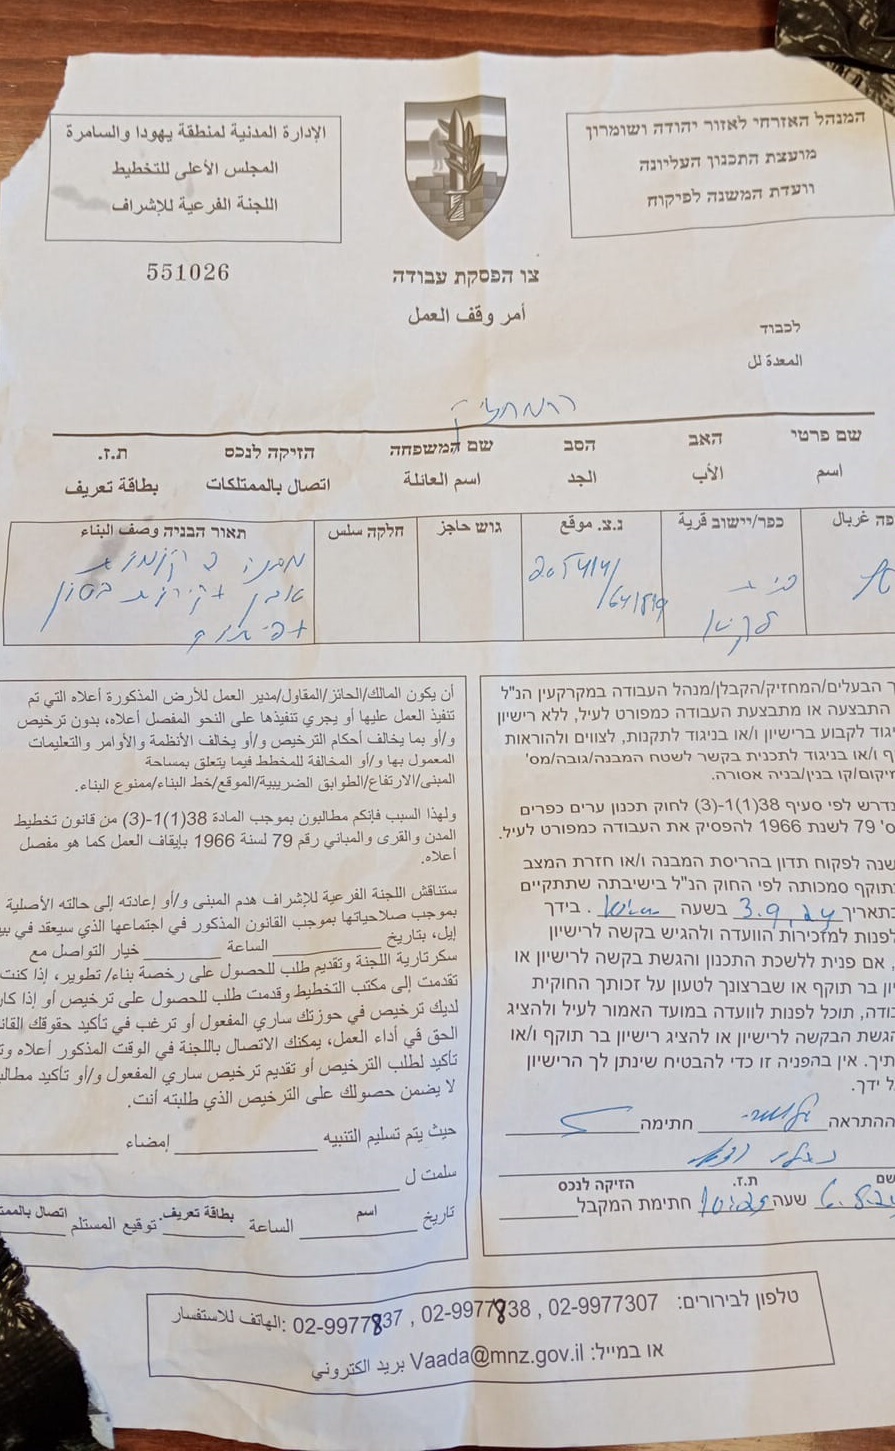 المنהל האזרחי לאזור יהודה ושומרון
מועצת התכנון העליונה
וועדת המשנה לפיקוח
الإدارة المدنية لمنطقة يهودا والسامرة
المجلس الأعلى للتخطيط
اللجنة الفرعية للإشراف
551026
צו הפסקת עבודה
أمر وقف العمل
לכבוד
المعدة لل
המחזיק
שם פרטי האב הסב שם המשפחה הזיקה לנכס ת.ז.
اسم الأب الجد اسم العائلة اتصال بالممتلكات بطاقة تعريف
פה غربال כפר/יישוב قرية נ.צ. موقع גוש حاجز חלקה سلس תאור הבניה وصف البناء
בית
ר הבעלים/המחזיק/הקבלן/מנהל העבודה במקרקעין הנ"ל
התבצעה או מתבצעת העבודה כמפורט לעיל, ללא רישיון
יגוד לקבוע ברישיון ו/או בניגוד לתקנות, לצווים ולהוראות
ף ו/או בניגוד לתכנית בקשר לשטח המבנה/גובה/מס'
יקום/קו בנין/בניה אסורה.
נדרש לפי סעיף 38(1)-(3) לחוק תכנון ערים כפרים
ס' 79 לשנת 1966 להפסיק את העבודה כמפורט לעיל.
שנה לפקוח תדון בהריסת המבנה ו/או חזרת המצב
תוקף סמכותה לפי החוק הנ"ל בישיבתה שתתקיים
בתאריך 3.9.24 בשעה . בידך
לפנות למזכירות הוועדה ולהגיש בקשה לרישיון
, אם פנית ללשכת התכנון והגשת בקשה לרישיון או
יון בר תוקף או שברצונך לטעון על זכותך החוקית
בודה, תוכל לפנות לוועדה במועד האמור לעיל ולהציג
הגשת הבקשה לרישיון או להציג רישיון בר תוקף ו/או
תיך. אין בהפניה זו כדי להבטיח שינתן לך הרישיון
ל ידך.
ההתראה חתימה
שם ת.ז. הזיקה לנכס
שעה חתימת המקבל
أن يكون المالك/الحائز/المقاول/مدير العمل للأرض المذكورة أعلاه التي تم
تنفيذ العمل عليها أو يجري تنفيذها على النحو المفصل أعلاه، بدون ترخيص
و/أو بما يخالف أحكام الترخيص و/أو يخالف الأنظمة والأوامر والتعليمات
المعمول بها و/أو المخالفة للمخطط فيما يتعلق بمساحة
المبنى/الارتفاع/الطوابق الضريبية/الموقع/خط البناء/ممنوع البناء.
ولهذا السبب فإنكم مطالبون بموجب المادة 38(1)-(3) من قانون تخطيط
المدن والقرى والمباني رقم 79 لسنة 1966 بإيقاف العمل كما هو مفصل
أعلاه.
ستناقش اللجنة الفرعية للإشراف هدم المبنى و/أو إعادته إلى حالته الأصلية
بموجب صلاحياتها بموجب القانون المذكور في اجتماعها الذي سيعقد في بي
إيل، بتاريخ الساعة خيار التواصل مع
سكرتارية اللجنة وتقديم طلب للحصول على رخصة بناء/ تطوير، إذا كنت
تقدمت إلى مكتب التخطيط وقدمت طلب للحصول على ترخيص أو إذا كار
لديك ترخيص في حوزتك ساري المفعول أو ترغب في تأكيد حقوقك القان
الحق في أداء العمل، يمكنك الاتصال باللجنة في الوقت المذكور أعلاه وت
تأكيد لطلب الترخيص أو تقديم ترخيص ساري المفعول و/أو تأكيد مطالب
لا يضمن حصولك على الترخيص الذي طلبته أنت.
حيث يتم تسليم التنبيه إمضاء
سلمت ل
اسم بطاقة تعريف. اتصال بالممت
تاريخ الساعة توقيع المستلم
טלפון לבירורים: 02-9977307 , 02-9977838 , 02-9977837 :الهاتف للاستفسار
או במייל: Vaada@mnz.gov.il بريد الكتروني